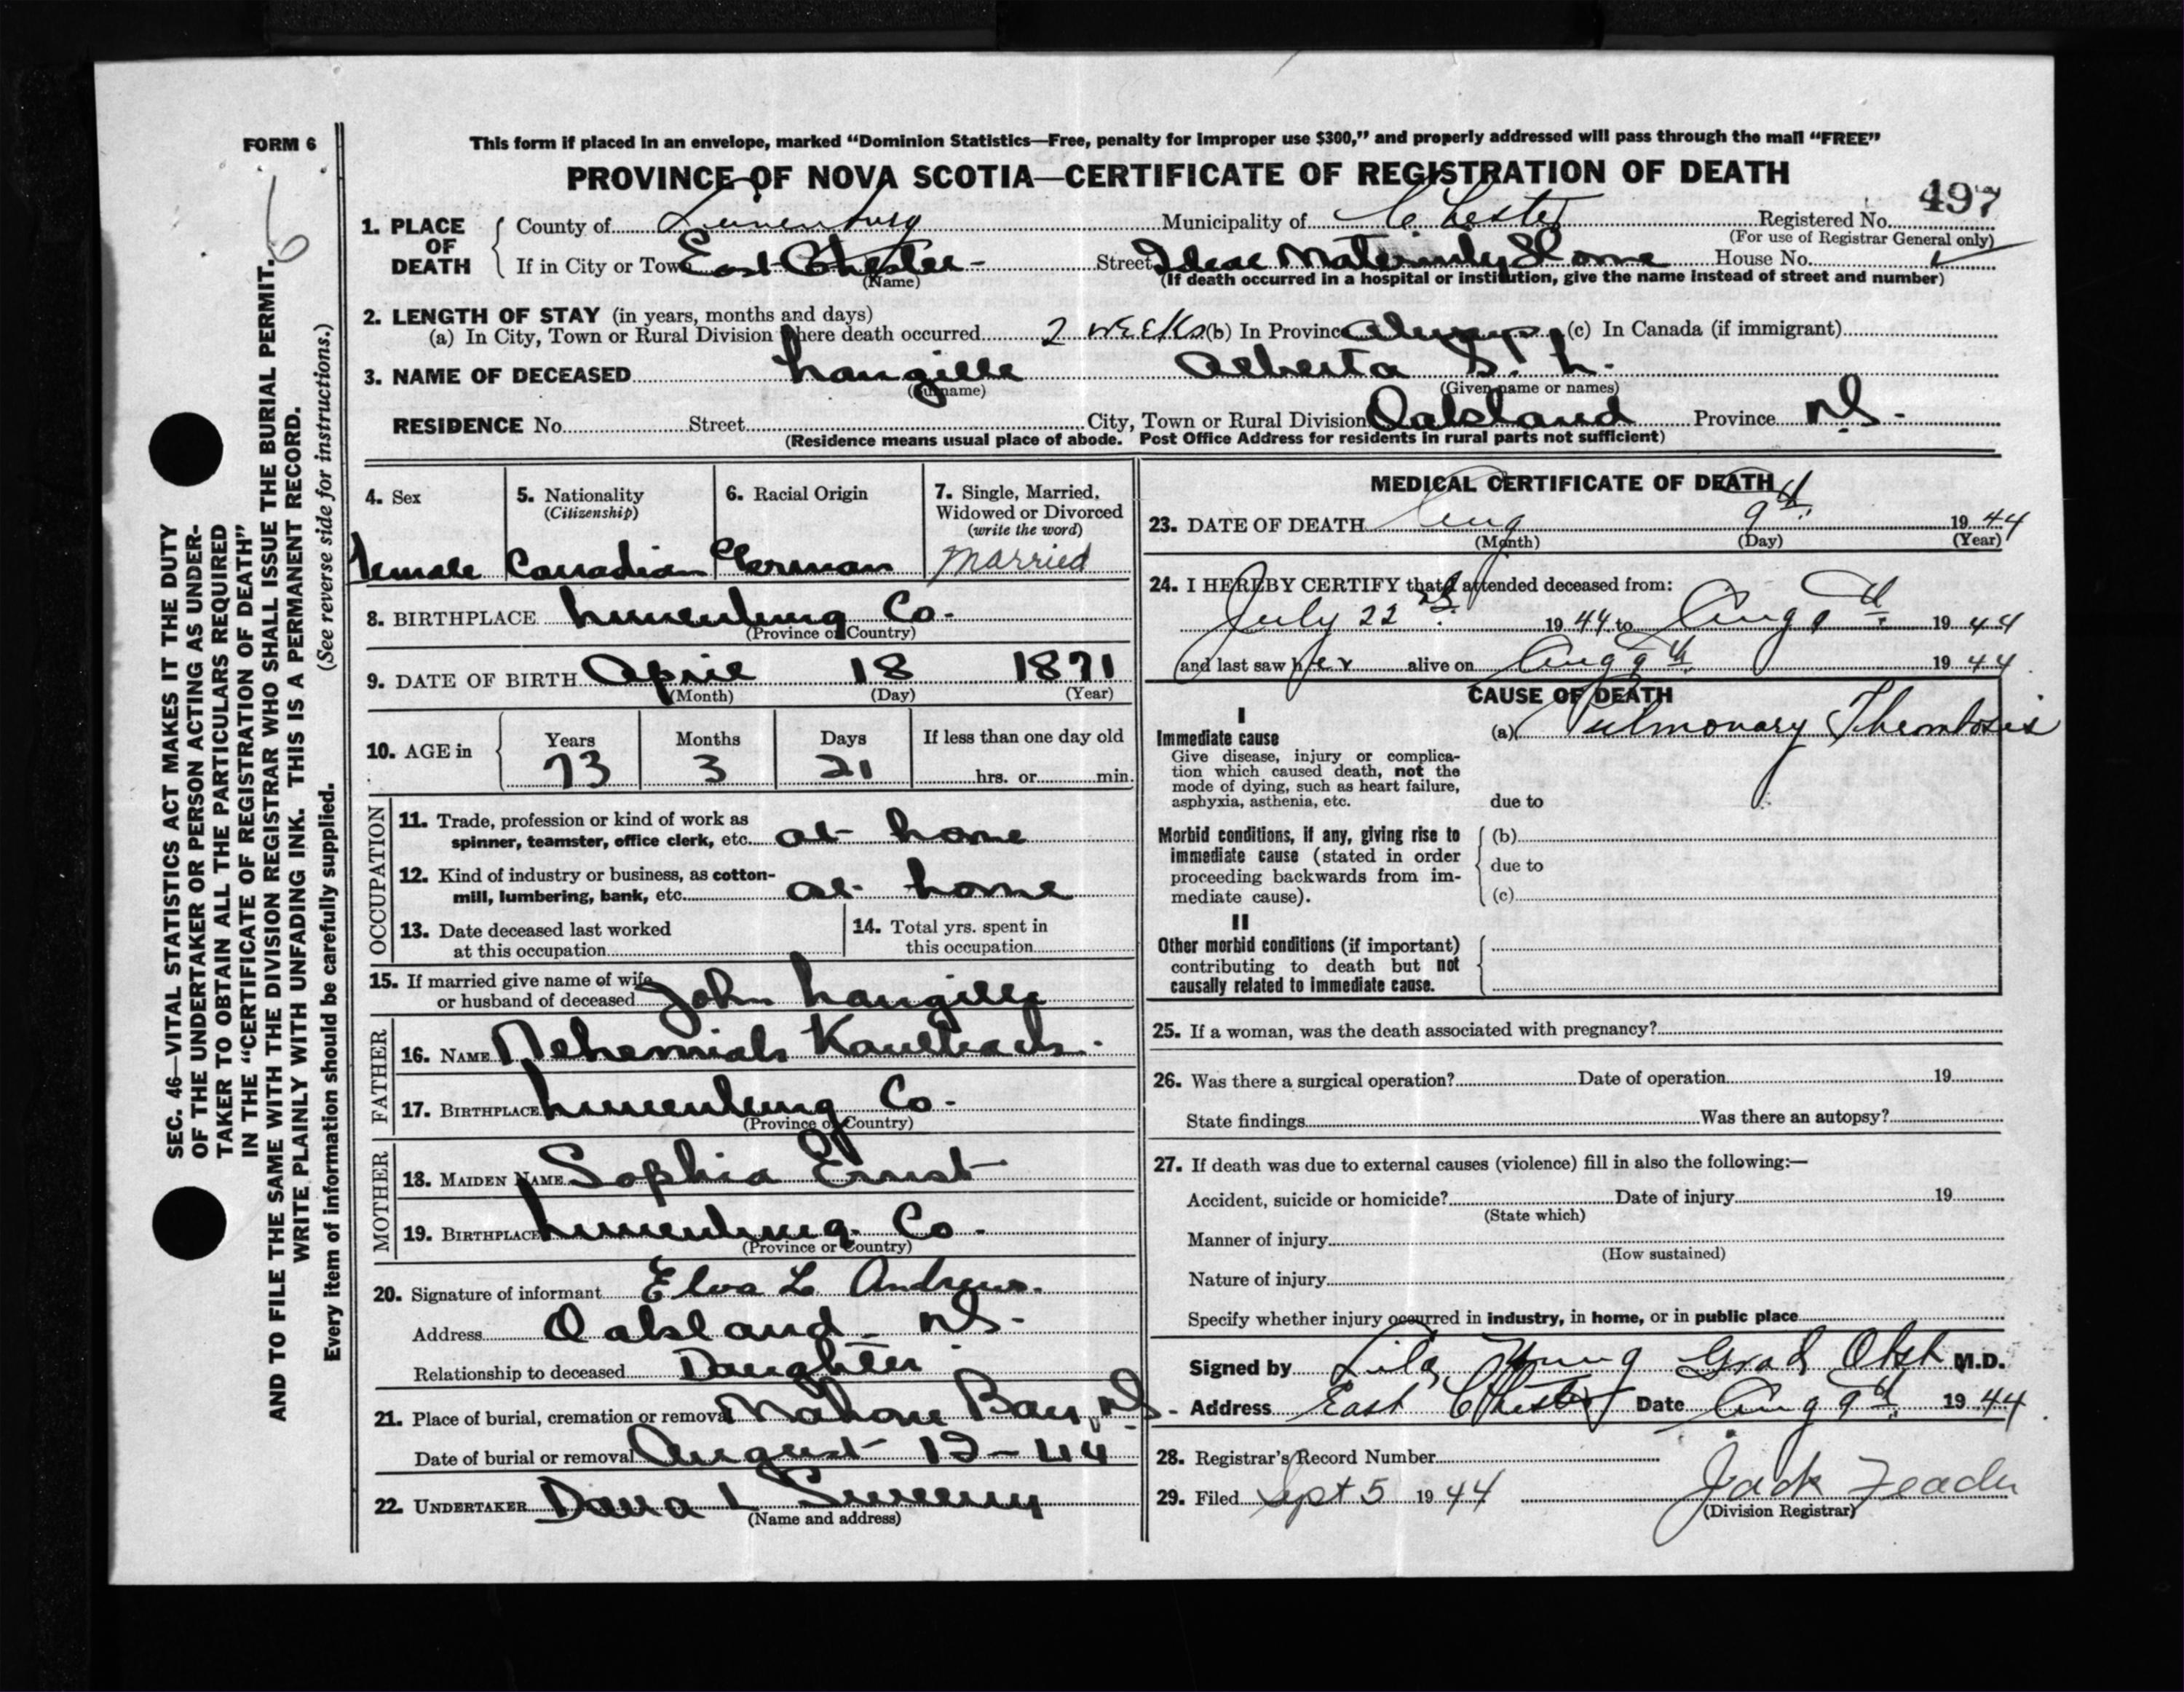 FORM 6
This form if placed in an envelope, marked “Dominion Statistics—Free, penalty for improper use $300,” and properly addressed will pass through the mail “FREE”
PROVINCE OF NOVA SCOTIA—CERTIFICATE OF REGISTRATION OF DEATH
497
1. PLACE OF DEATH
County of Lunenburg Municipality of Chester Registered No.
(For use of Registrar General only)
If in City or Town East Chester - Street Ideal Maternity Home House No.
(Name) (If death occurred in a hospital or institution, give the name instead of street and number)
2. LENGTH OF STAY (in years, months and days)
(a) In City, Town or Rural Division where death occurred 2 weeks (b) In Province always (c) In Canada (if immigrant)
3. NAME OF DECEASED Langille Alberta S. L.
(Surname) (Given name or names)
RESIDENCE No. Street City, Town or Rural Division Oakland Province N.S.
(Residence means usual place of abode. Post Office Address for residents in rural parts not sufficient)
4. Sex 5. Nationality 6. Racial Origin 7. Single, Married,
(Citizenship) Widowed or Divorced
(write the word)
Female Canadian German Married
8. BIRTHPLACE Lunenburg Co.
(Province or Country)
9. DATE OF BIRTH April 18 1871
(Month) (Day) (Year)
10. AGE in Years Months Days If less than one day old
73 3 21 hrs. or min.
OCCUPATION
11. Trade, profession or kind of work as
spinner, teamster, office clerk, etc. at home
12. Kind of industry or business, as cotton-
mill, lumbering, bank, etc. at home
13. Date deceased last worked 14. Total yrs. spent in
at this occupation this occupation
15. If married give name of wife
or husband of deceased John Langille
FATHER
16. NAME Nehemiah Kaulback.
17. BIRTHPLACE Lunenburg Co.
(Province or Country)
MOTHER
18. MAIDEN NAME Sophia Ernst
19. BIRTHPLACE Lunenburg Co.
(Province or Country)
20. Signature of informant Elva L Andrews.
Address Oakland N.S.
Relationship to deceased Daughter
21. Place of burial, cremation or removal Mahone Bay, N.S.
Date of burial or removal August 12-44
22. UNDERTAKER Dana L Sweeny
(Name and address)
MEDICAL CERTIFICATE OF DEATH
23. DATE OF DEATH Aug 9th 1944
(Month) (Day) (Year)
24. I HEREBY CERTIFY that I attended deceased from:
July 22nd 1944 to Aug 9th 1944
and last saw her alive on Aug 9th 1944
CAUSE OF DEATH
I
Immediate cause (a) Pulmonary Thrombosis
Give disease, injury or complica-
tion which caused death, not the
mode of dying, such as heart failure,
asphyxia, asthenia, etc. due to
Morbid conditions, if any, giving rise to (b)
immediate cause (stated in order due to
proceeding backwards from im-
mediate cause). (c)
II
Other morbid conditions (if important)
contributing to death but not
causally related to immediate cause.
25. If a woman, was the death associated with pregnancy?
26. Was there a surgical operation? Date of operation 19
State findings Was there an autopsy?
27. If death was due to external causes (violence) fill in also the following:—
Accident, suicide or homicide? Date of injury 19
(State which)
Manner of injury
(How sustained)
Nature of injury
Specify whether injury occurred in industry, in home, or in public place
Signed by Lila Young Grad Obst M.D.
Address East Chester Date Aug 9th 1944
28. Registrar's Record Number
29. Filed Sept 5 1944 Jack
(Division Registrar)
SEC. 46—VITAL STATISTICS ACT MAKES IT THE DUTY
OF THE UNDERTAKER OR PERSON ACTING AS UNDER-
TAKER TO OBTAIN ALL THE PARTICULARS REQUIRED
IN THE “CERTIFICATE OF REGISTRATION OF DEATH”
AND TO FILE THE SAME WITH THE DIVISION REGISTRAR WHO SHALL ISSUE THE BURIAL PERMIT.
WRITE PLAINLY WITH UNFADING INK. THIS IS A PERMANENT RECORD.
Every item of information should be carefully supplied. (See reverse side for instructions.)